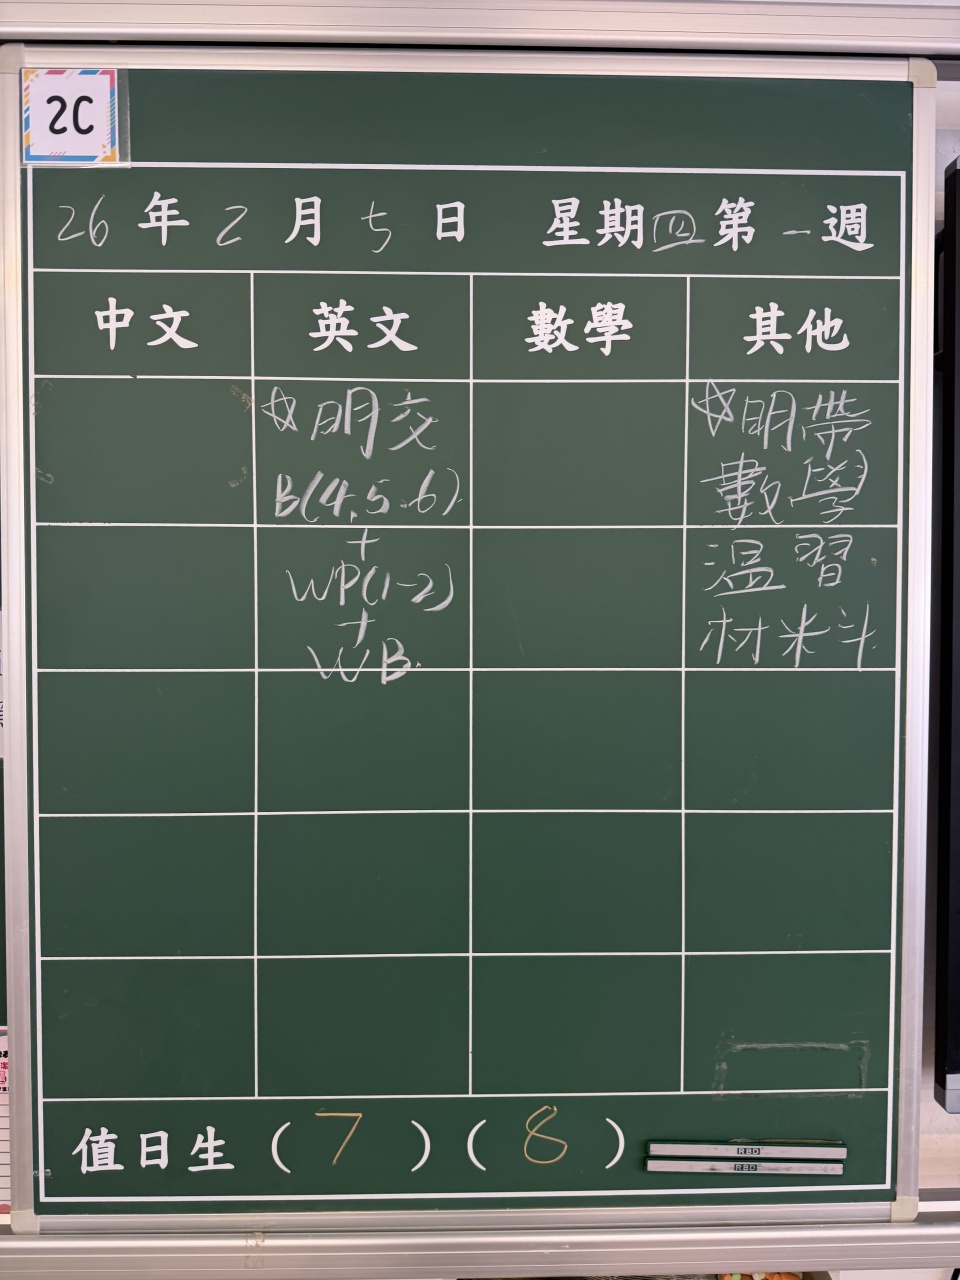 2C
26年2月5日 星期四第一週
中文 英文 數學 其他
☆明交
B(4,5,6)
+
WP(1-2)
+
WB.
☆明帶
數學
溫習
材料
值日生(7)(8)
RBD
RBD